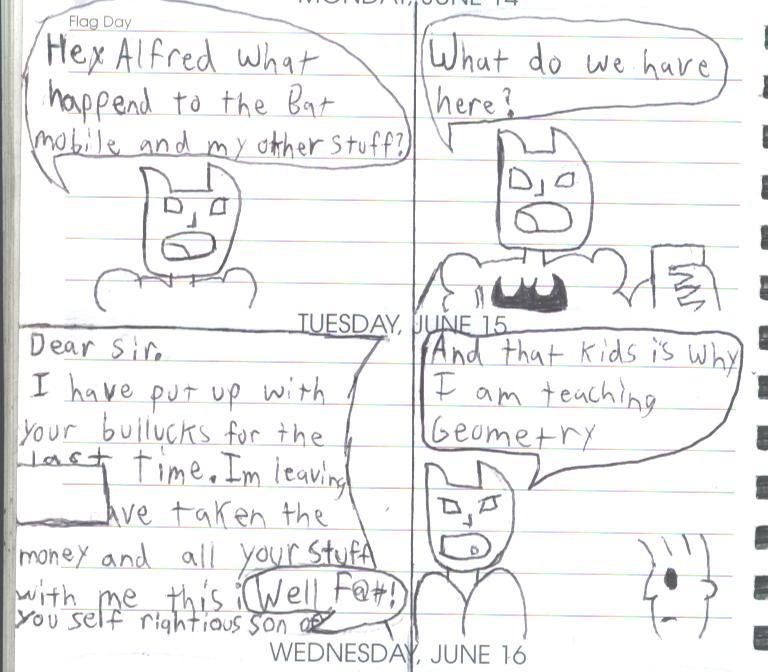 MONDAY, JUNE 14
Flag Day
Hey Alfred what
happend to the Bat
mobile and my other stuff?
What do we have
here?
TUESDAY, JUNE 15
Dear Sir.
I have put up with
your bullucks for the
last time. Im leaving
ave taken the
money and all your stuff
with me this i
You self rightious son of
Well F@#!
And that kids is why
I am teaching
Geometry
WEDNESDAY, JUNE 16